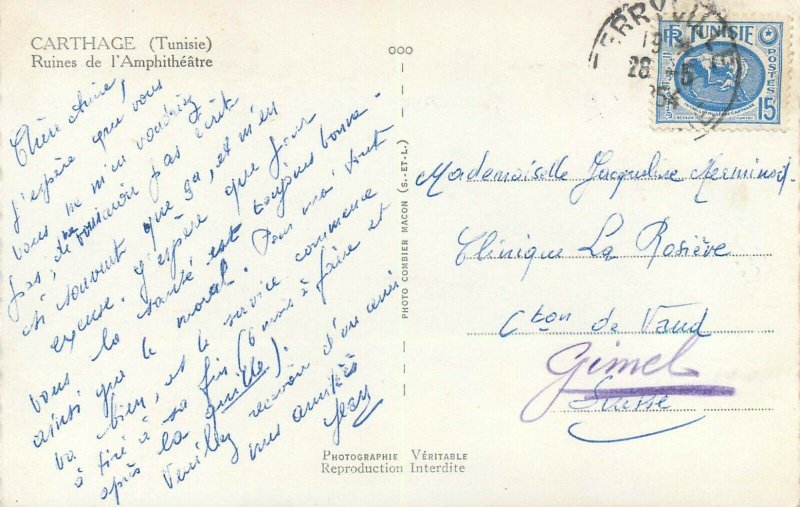 CARTHAGE (Tunisie)
Ruines de l'Amphithéâtre
Chère Amie,
J'espère que vous
vous ne m'en voudriez
pas, de ne pas écrit
si souvent que ça, et m'en
excuse. J'espère que pour
vous la santé est toujours bonne
ainsi que le moral. Pour moi tout
va bien, et le service commence
à tiré à sa fin (6 mois à faire et
après la quille).
Veuillez recevoir d'un ami
mes amitiés
Jean
PHOTO COMBIER MACON (S.-ET-L.)
PHOTOGRAPHIE VÉRITABLE
Reproduction Interdite
RF TUNISIE
POSTES
15F
FERRYVILLE
19
28 -5
54
Mademoiselle Jacqueline Merminod
Clinique La Rosière
Cton de Vaud
Gimel
Suisse